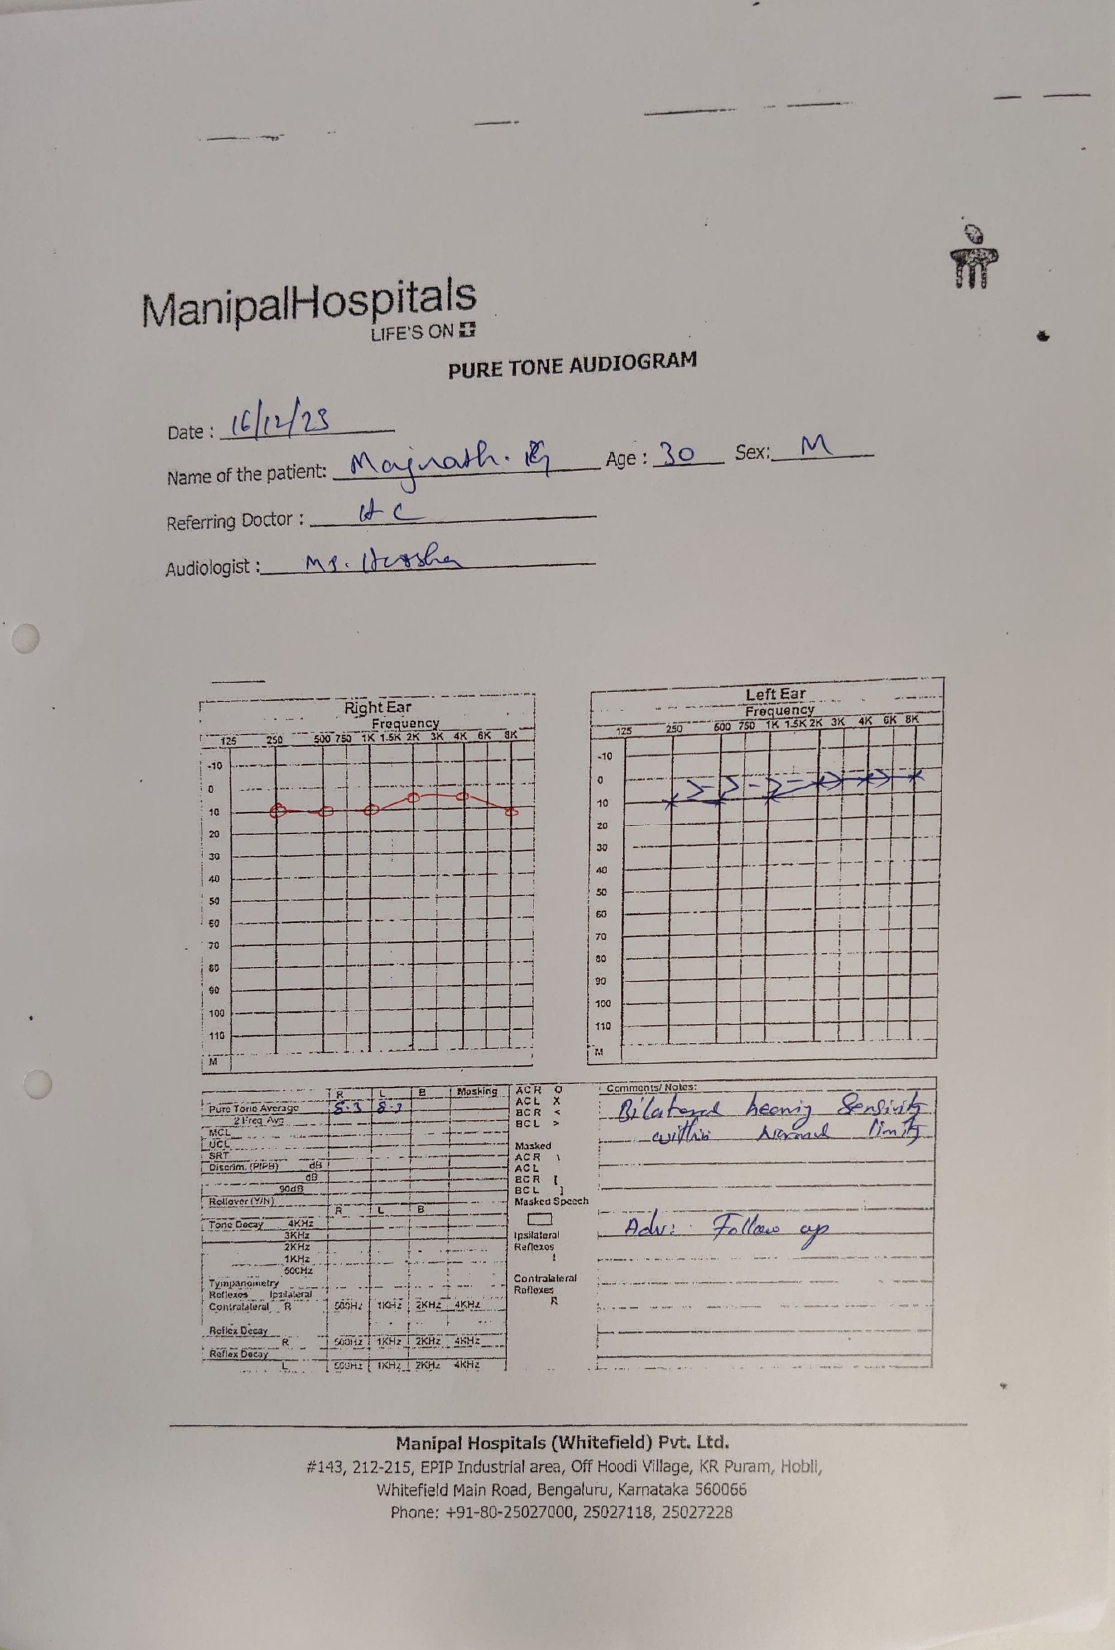 ManipalHospitals
LIFE'S ON
PURE TONE AUDIOGRAM
Date : 16/12/23
Name of the patient: Age : 30 Sex: M
Referring Doctor : H C
Audiologist : Ms.
Right Ear
Frequency
125 250 500 750 1K 1.5K 2K 3K 4K 6K 8K
-10
0
10
20
30
40
50
60
70
80
90
100
110
M
Left Ear
Frequency
125 250 500 750 1K 1.5K 2K 3K 4K 6K 8K
-10
0
10
20
30
40
50
60
70
80
90
100
110
M
R L B Masking
Pure Tone Average 8.3
2 Freq Avg
MCL
UCL
SRT
Discrim. (PIPB) dB
dB
90dB
Rollover (Y/N)
R L B
Tone Decay 4KHz
3KHz
2KHz
1KHz
500Hz
Tympanometry
Reflexes Ipsilateral
Contralateral R 500Hz 1KHz 2KHz 4KHz
Reflex Decay
R 500Hz 1KHz 2KHz 4KHz
Reflex Decay
L 500Hz 1KHz 2KHz 4KHz
ACR O
ACL X
BCR <
BCL >
Masked
ACR \
ACL
BCR [
BCL ]
Masked Speech
Ipsilateral
Reflexes
I
Contralateral
Reflexes
R
Comments/ Notes:
Bilateral hearing Sensivity
within Normal limits
Adv: Follow up
Manipal Hospitals (Whitefield) Pvt. Ltd.
#143, 212-215, EPIP Industrial area, Off Hoodi Village, KR Puram, Hobli,
Whitefield Main Road, Bengaluru, Karnataka 560066
Phone: +91-80-25027000, 25027118, 25027228